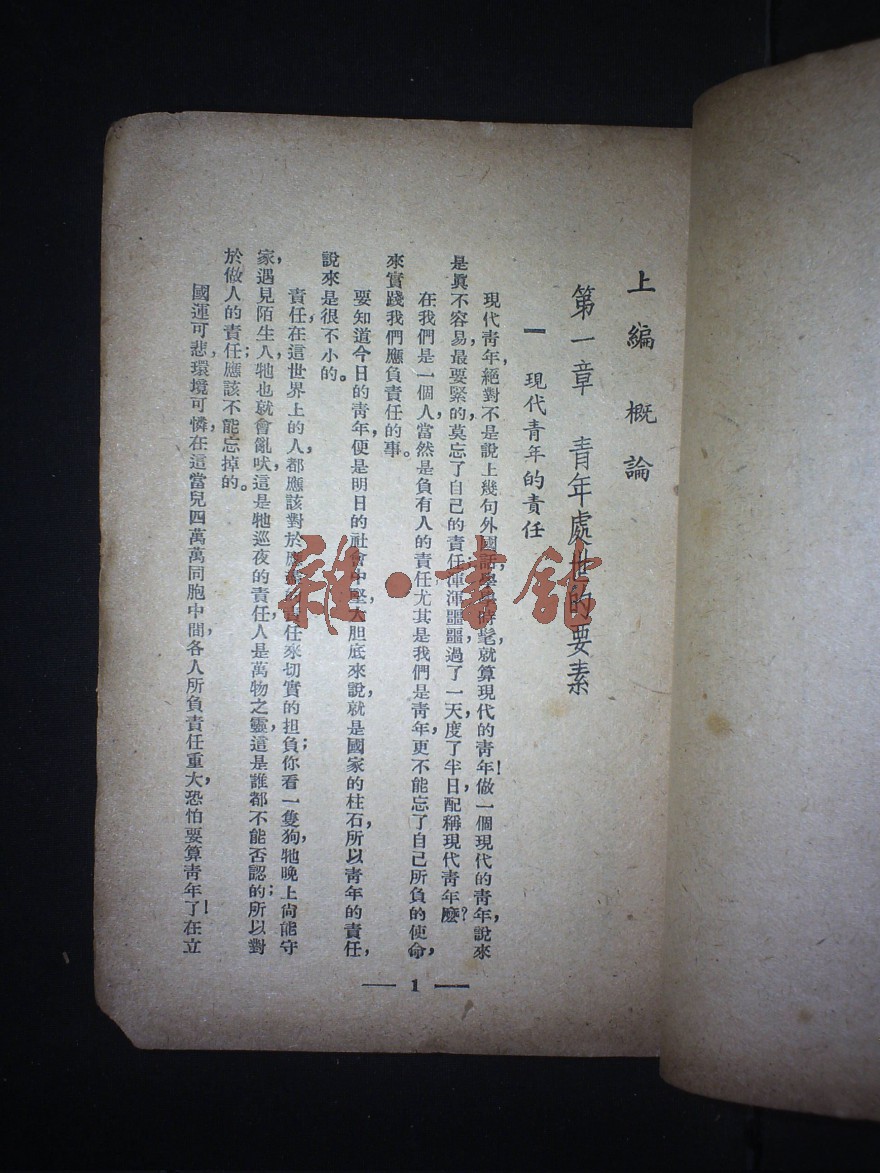 上編 概論
第一章 青年處世的要素
一 現代青年的責任
現代青年,絕對不是說上幾句外國話,學學時髦,就算現代的青年!做一個現代的青年,說來
是眞不容易,最要緊的,莫忘了自己的責任;渾渾噩噩,過了一天,度了半日,配稱現代青年麽?
在我們是一個人,當然是負有人的責任,尤其是我們是青年,更不能忘了自己所負的使命,
來實踐我們應負責任的事。
要知道今日的青年,便是明日的社會中堅,大胆底來說,就是國家的柱石,所以青年的責任,
說來是很不小的。
責任,在這世界上的人,都應該對於應 責任來切實的担負;你看一隻狗,牠晚上尙能守
家,遇見陌生人,牠也就會亂吠,這是牠巡夜的責任,人是萬物之靈,這是誰都不能否認的;所以對
於做人的責任;應該不能忘掉的。
國運可悲,環境可憐,在這當兒四萬萬同胞中間,各人所負責任重大,恐怕要算青年了!在立
— 1 —
雜·書館